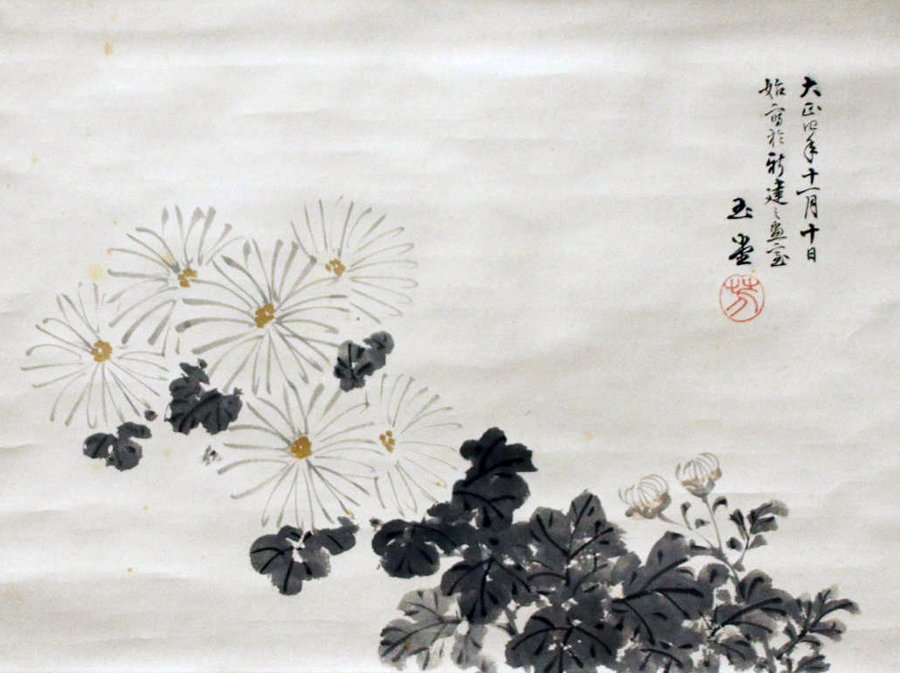 大正四年十一月十日
始寫於新建之画室
玉堂
芳